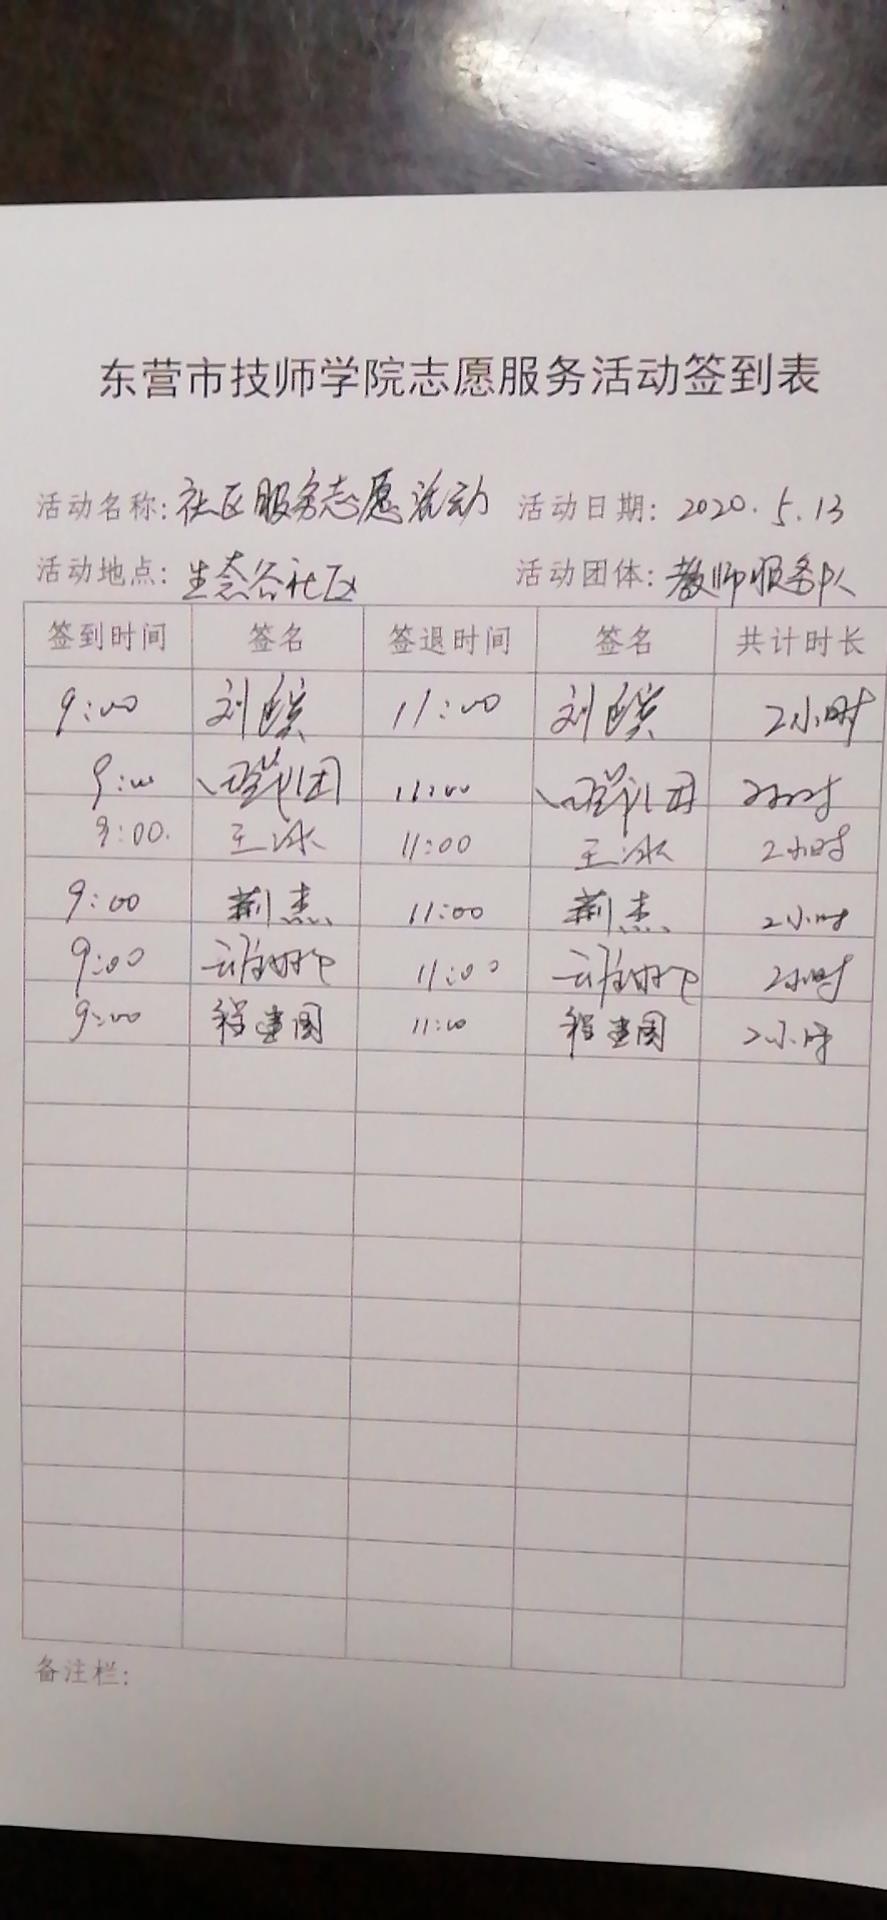 东营市技师学院志愿服务活动签到表
活动名称: 社区服务志愿活动 活动日期: 2020.5.13
活动地点: 生态谷社区 活动团体: 教师服务队
签到时间 签名 签退时间 签名 共计时长
9:00 刘 11:00 刘 2小时
9:00 11:00 2小时
9:00. 王冰 11:00 王冰 2小时
9:00 荆杰 11:00 荆杰 2小时
9:00 11:00 2小时
9:00 程建国 11:00 程建国 2小时
备注栏: